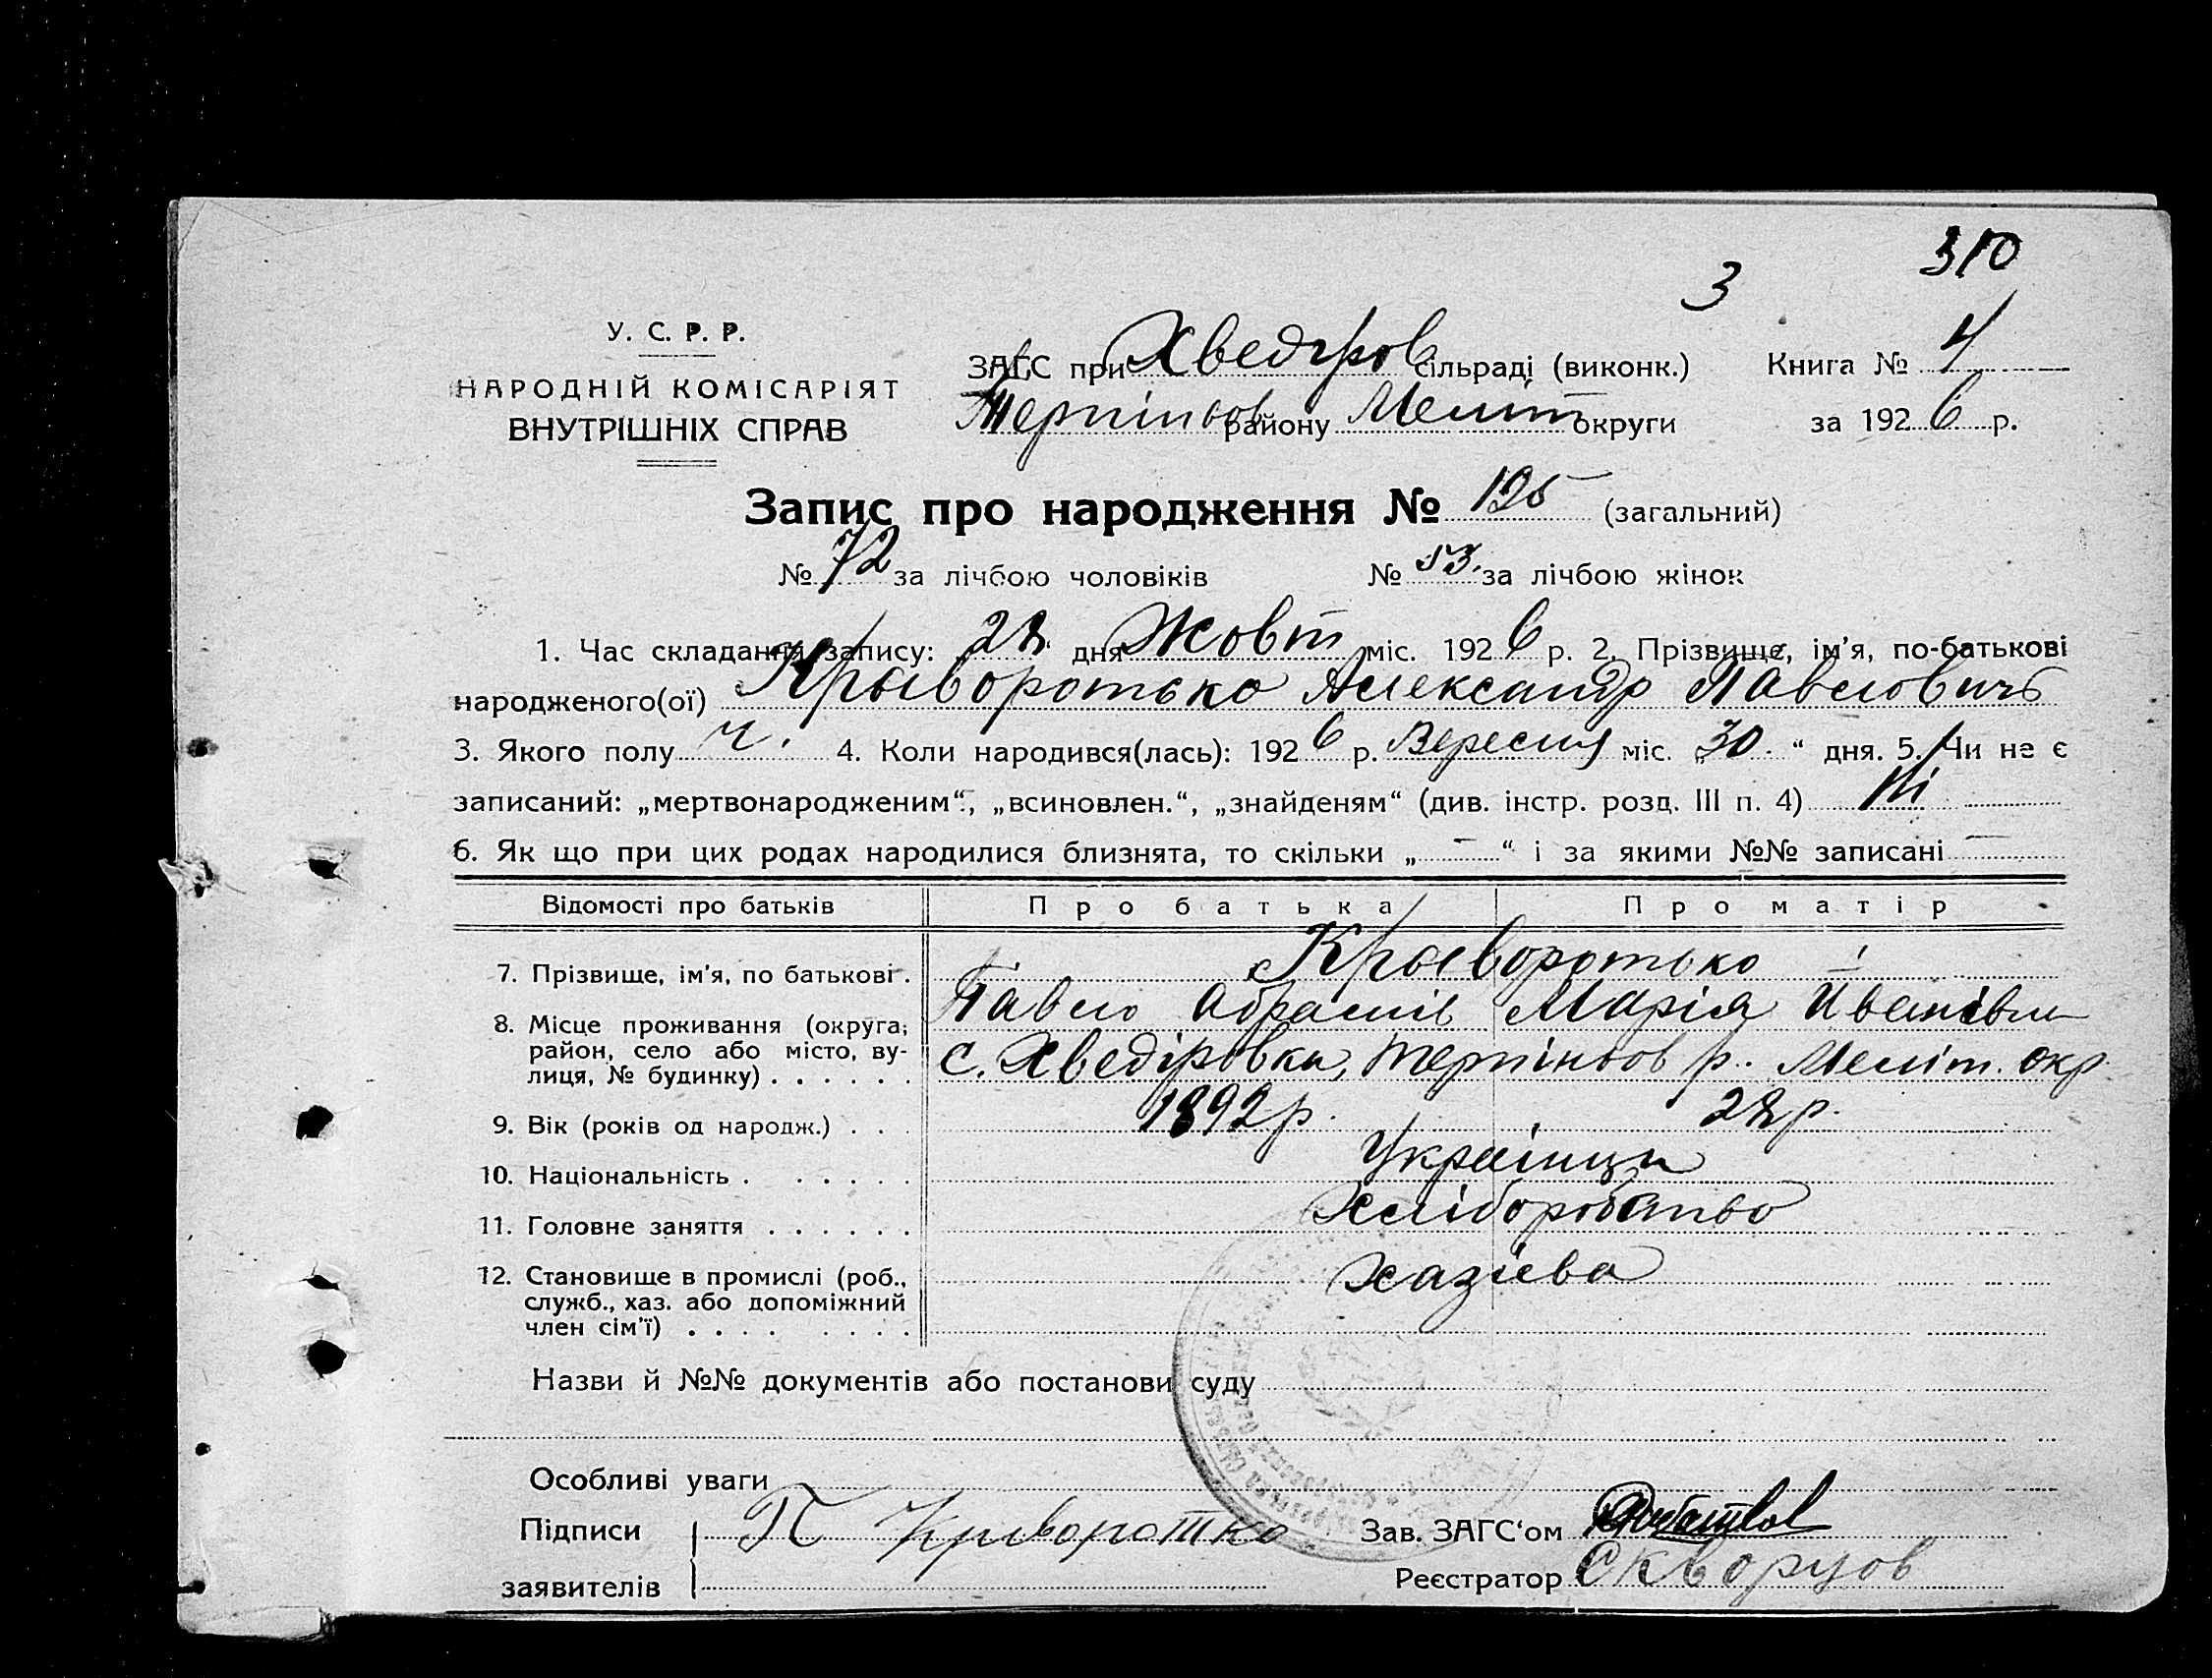 310
3
У. С. Р. Р.
НАРОДНІЙ КОМІСАРІЯТ
ВНУТРІШНІХ СПРАВ
ЗАГС при Хведіров сільраді (виконк.) Книга № 4
Терпіньов району Меліт округи за 1926 р.
Запис про народження № 125 (загальний)
№ 72 за лічбою чоловіків № 53. за лічбою жінок
1. Час складання запису: 28 дня Жовт міс. 1926 р. 2. Прізвище, ім'я, по-батькові
народженого(ої) Крыворотько Александр Павлович
3. Якого полу ч. 4. Коли народився(лась): 1926 р. Вересня міс. „30.“ дня. 5. Чи не є
записаний: „мертвонародженим“, „всиновлен.“, „знайденям“ (див. інстр. розд. III п. 4) Ні
6. Як що при цих родах народилися близнята, то скільки „ — “ і за якими №№ записані —
Відомості про батьків Про батька Про матір
7. Прізвище, ім'я, по батькові . Крыворотько
Павло Абрамів Марія Иванівна
8. Місце проживання (округа, район, село або місто, вулиця, № будинку) . . . . . . с. Хведірівка, Терпіньов р. Меліт. окр.
9. Вік (років од народж.) . . . 1892р. 28р.
10. Національність . . . . . . Українци
11. Головне заняття . . . . . . Хліборобство
12. Становище в промислі (роб., служб., хаз. або допоміжний член сім'ї) . . . . . . . . Хазяева
Назви й №№ документів або постанови суду
Особливі уваги
Підписи П Криворотко Зав. ЗАГС‘ом
заявителів Реєстратор Скворцов